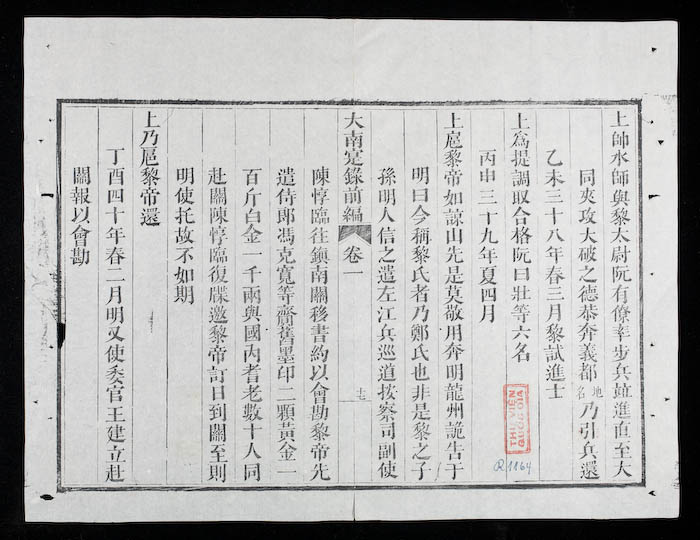 上帥水師與黎太尉阮有僚率步兵並進直至大
同夾攻大破之德恭奔義都地名乃引兵還
乙未三十八年春三月黎試進士
上為提調取合格阮曰壯等六名
丙申三十九年夏四月
上扈黎帝如諒山先是莫敬用奔明龍州詭告于
明曰今稱黎氏者乃鄭氏也非是黎之子
孫明人信之遣左江兵巡道按察司副使
大南寔錄前編 卷一 十七
陳惇臨往鎮南關移書約以會勘黎帝先
遣侍郎馮克寬等齎舊墨印二顆黃金一
百斤白金一千兩與國內耆老數十人同
赴關陳惇臨復牒邀黎帝訂日到關至則
明使托故不如期
上乃扈黎帝還
丁酉四十年春二月明又使委官王建立赴
關報以會勘
THU VIEN
QUOC GIA
R.1164